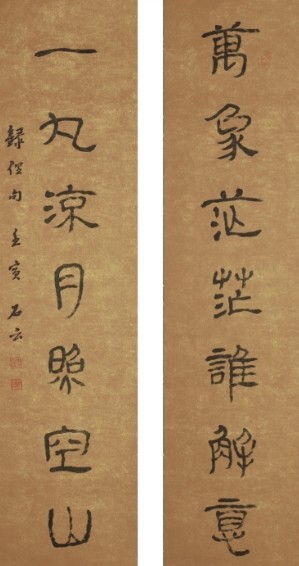 萬象茫茫誰解意
一丸涼月照空山
錄徑句壬寅石云